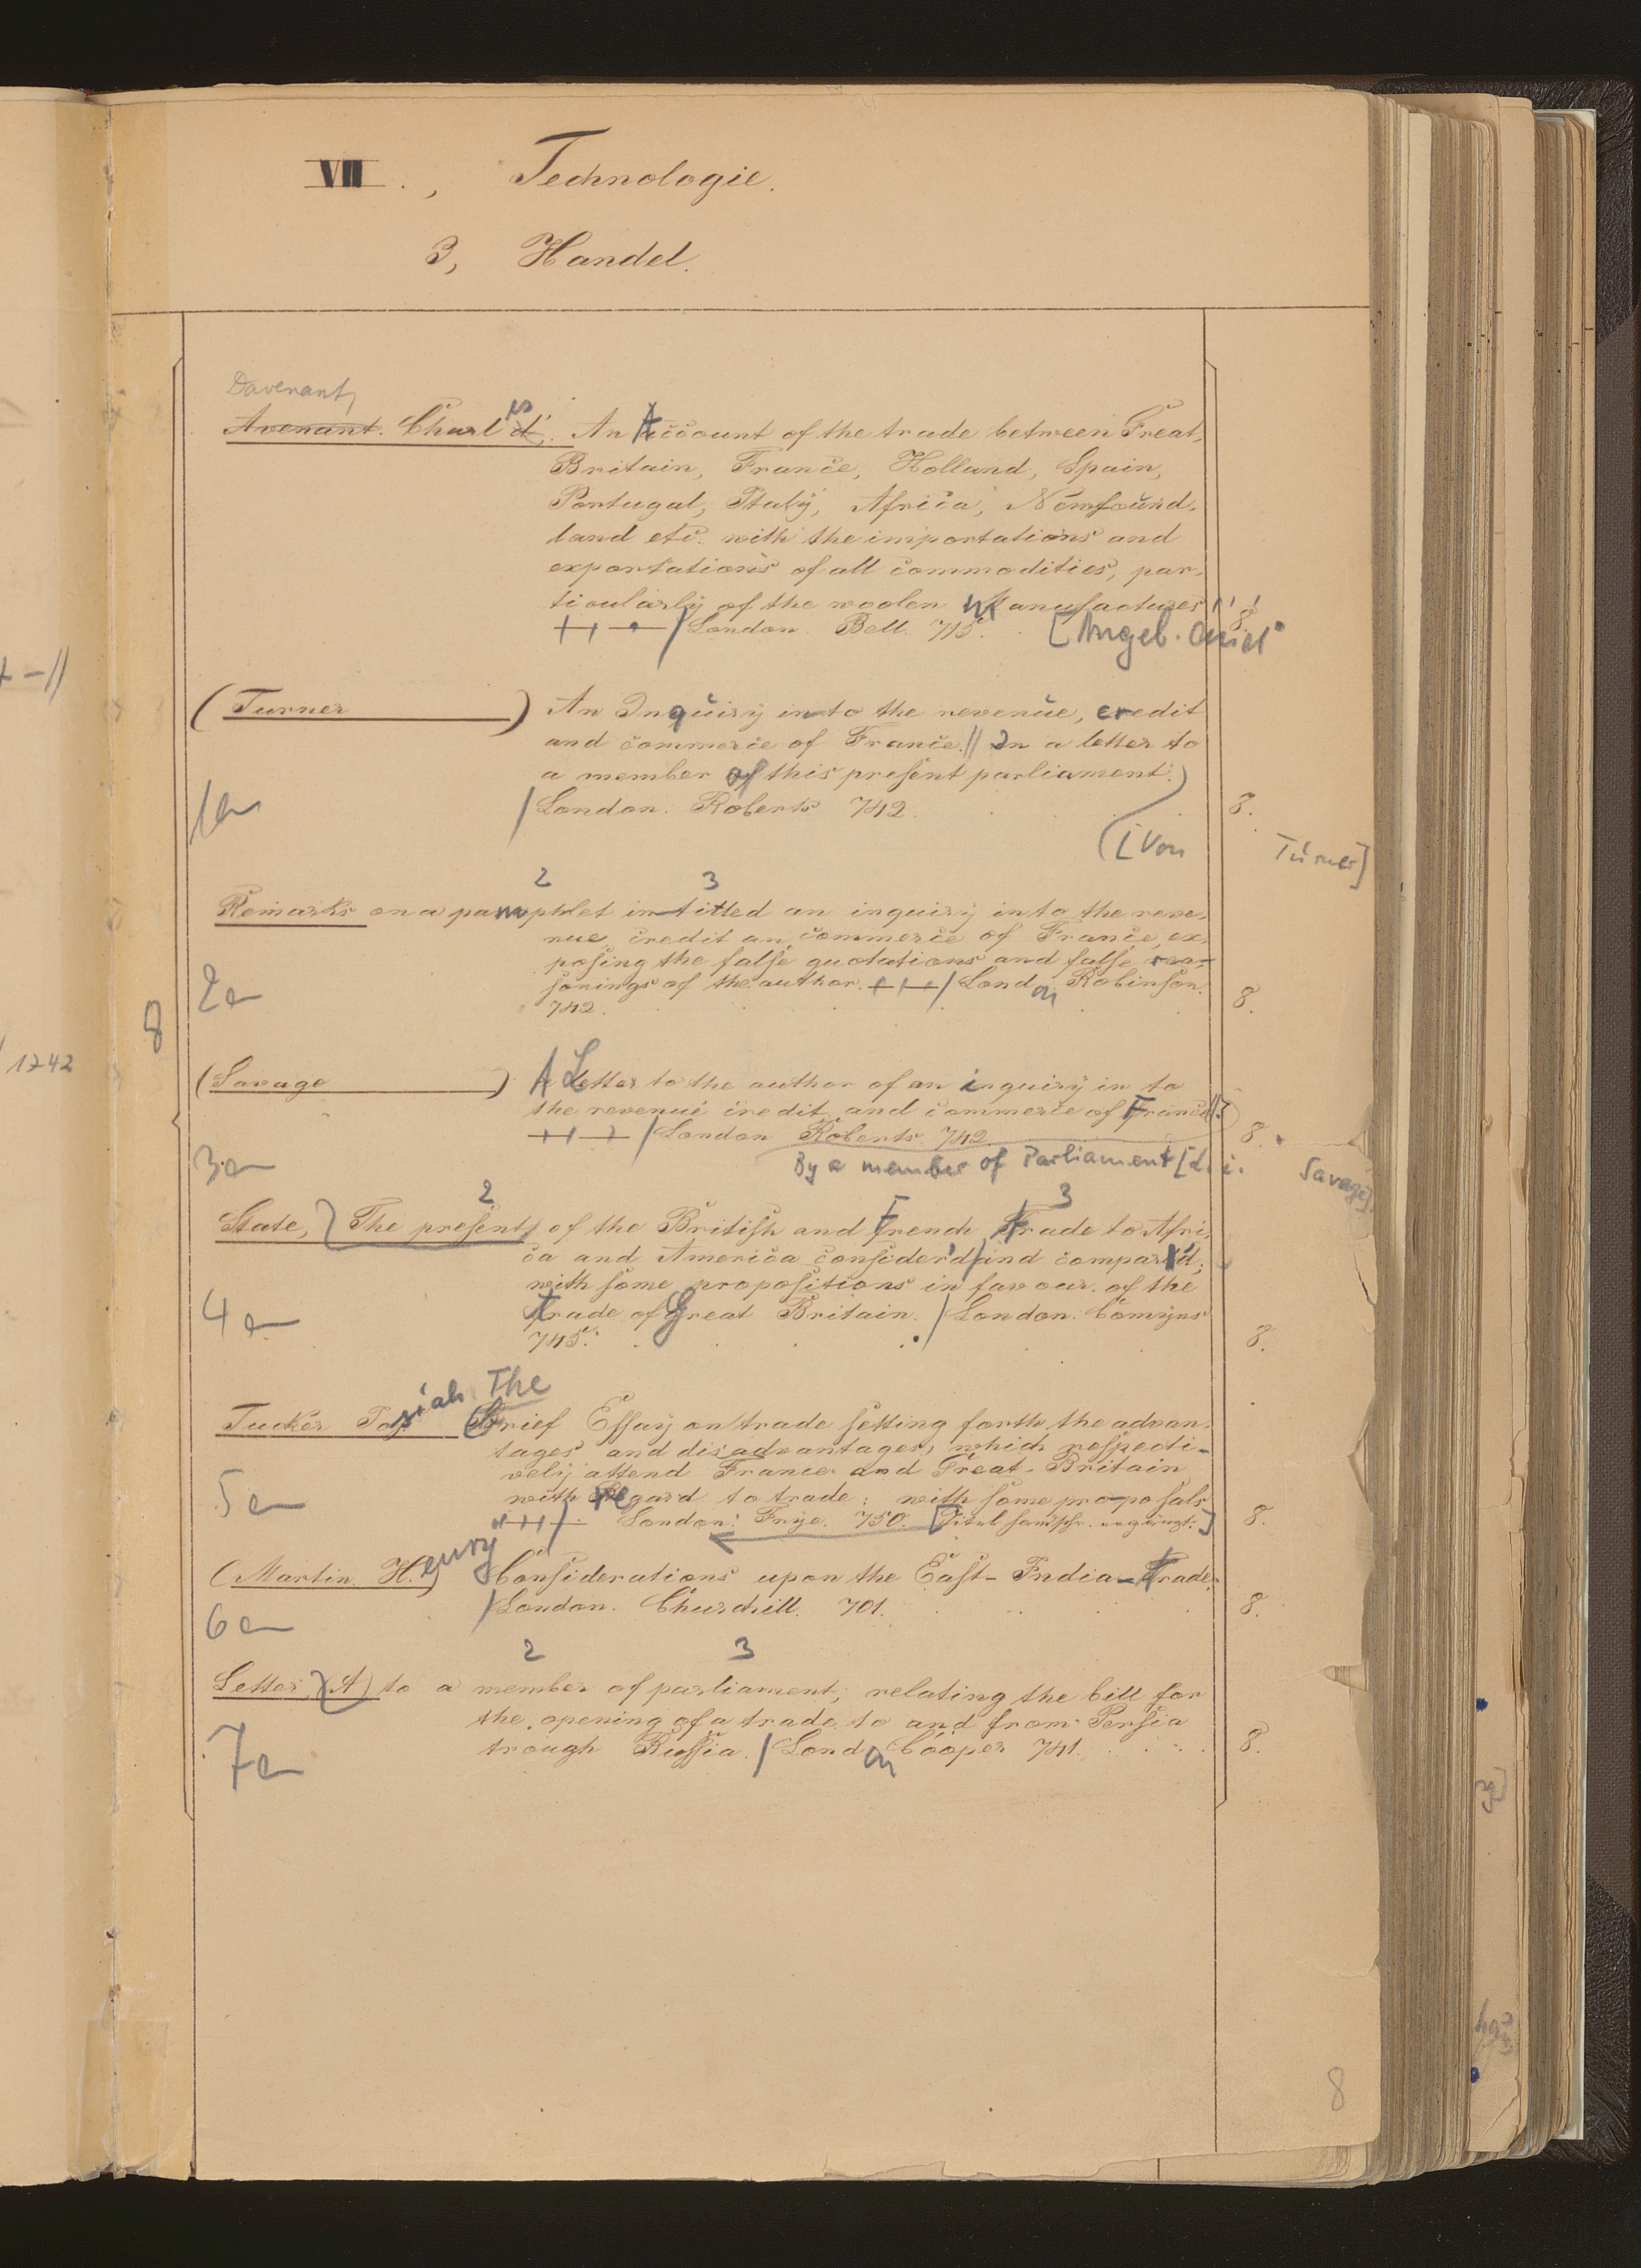 VII., Technologie.
3, Handel.
Davenant,
Avenant. Charles d'. An Account of the trade between Great-
Britain, France, Holland, Spain,
Portugal, Italy, Africa, Newfound-
land etc. with the importations and
exportations of all commodities, par-
ticularly of the woolen Manufactures
/ London. Bell. 715. 8.
[Angeb.
(Turner) An Inquiry into the revenue, credit
and commerce of France.|| In a letter to
a member of this present parliament.)
1a / London. Roberts 742. 8.
[Von Turner]
2 3
Remarks on a pamphlet intitled an inquiry into the reve-
nue credit an commerce of France, ex-
posing the false quotations and false rea-
2a sonings of the author. +++ / London Robinson.
742. 8.
8
1742
(Savage) A Letter to the author of an inquiry in to
the revenue credit and commerce of France||
/ London Roberts 742. 8.
3a By a member of Parliament [d. i. Savage]
2 3
State, The present, of the British and French Trade to Afri-
ca and America consider'd and compar'd,
with some propositions in favour of the
4a Trade of Great Britain. / London. Comyns
745. 8.
The
Tucker Josiah Brief Essay on trade setting forth the advan-
tages and disadvantages, which respecti-
vely attend France and Great-Britain
5a with regard to trade; with some proposals
London: Frye. 750. [Titel handschr. ergänzt.] 8.
(Martin Henry) Considerations upon the East-India-Trade.
6a / London. Churchill. 701. 8.
2 3
Letter, (A) to a member of parliament, relating the bill for
the opening of a trade to and from Persia
7a trough Russia. / London Cooper 741. 8.
8